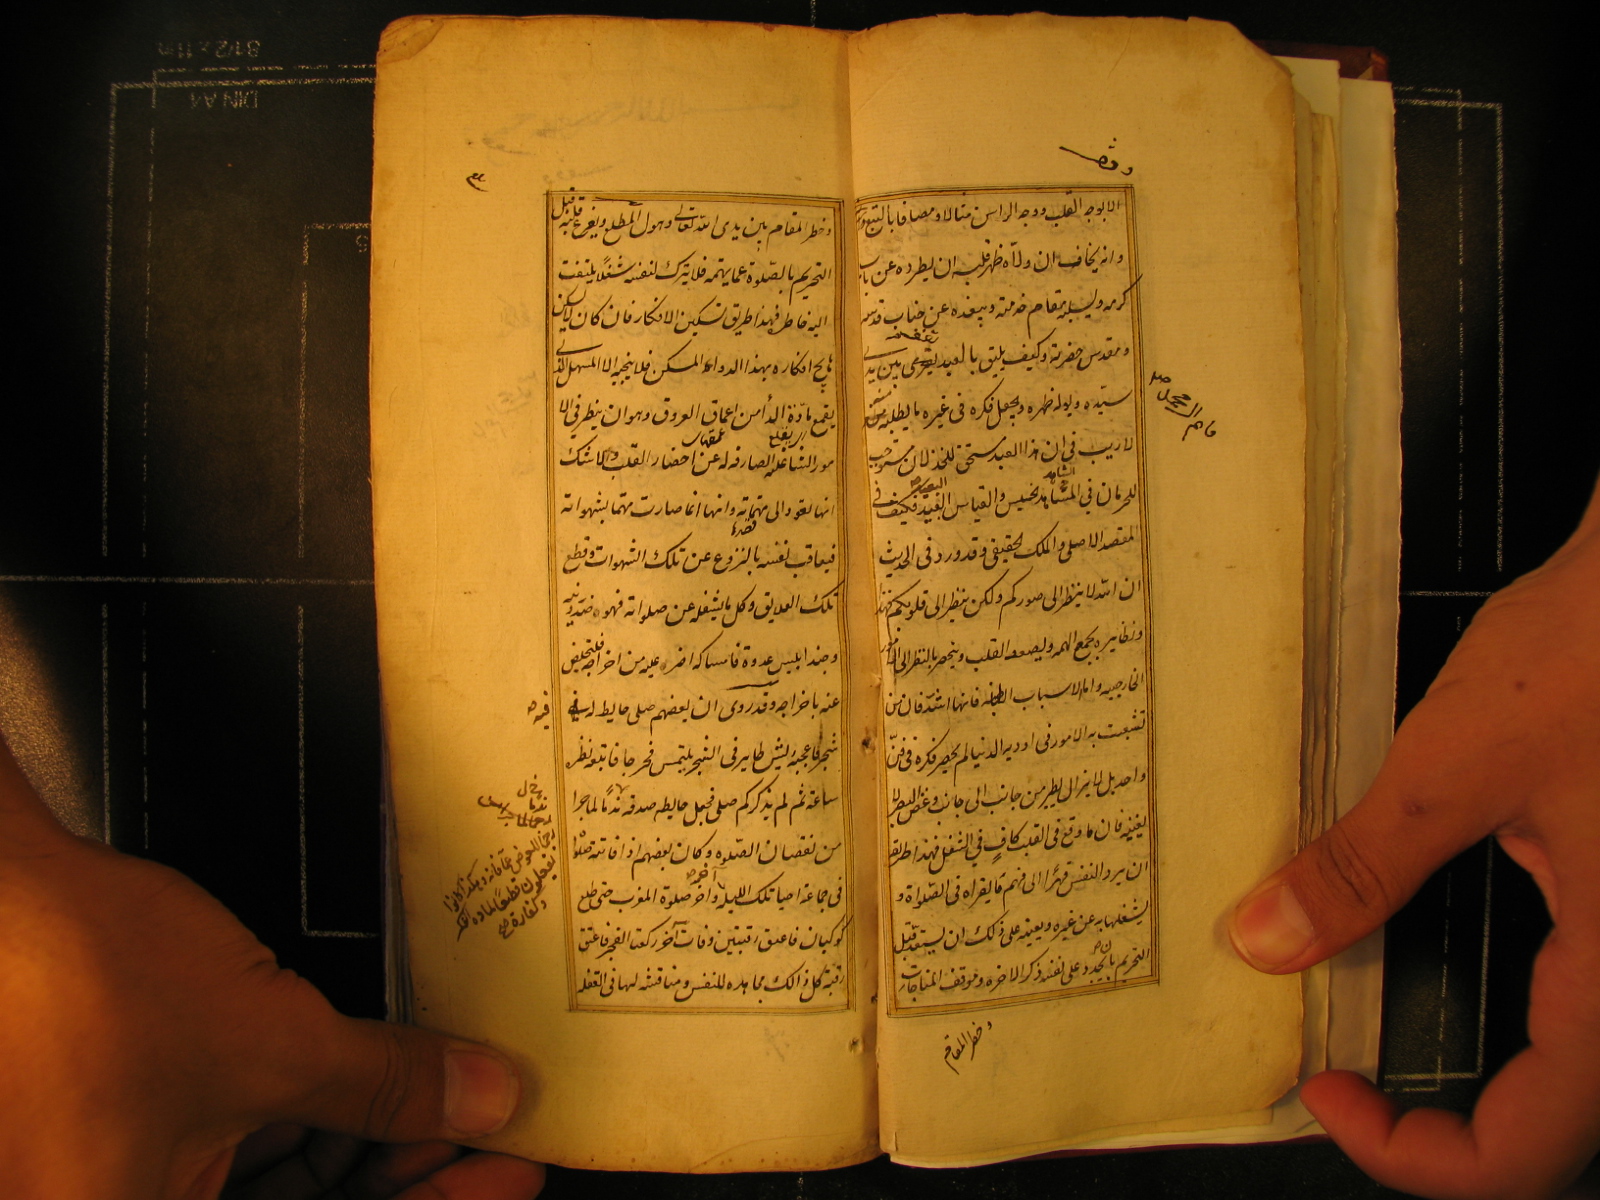 وقف
الا بوجه القلب ووجه الراس مثالا ومضافا بالتبع
وانه يخاف ان ولاه ظهر قلبه ان يطرده عن باب
كرمه ويسلبه مقام خدمته ويبعده عن جناب قدسه
ومقدس حضرته وكيف يليق بالعبد بين يدي
سيده ويوله ظهره ويجعل فكره في غيره ما يطلبه
لا ريب في ان هذا العبد مستحق للخذلان مستوجب
للحرمان في الشاهد الخسيس والقياس البعيد فكيف في
المقصد الاصلي والملك الحقيقي وقد ورد في الحديث
ان الله لا ينظر الى صوركم ولكن ينظر الى قلوبكم فهذا
ونظايره يجمع الهمه ويصعه القلب وينحصر بالنظر الى الامور
الخارجيه واما الاسباب الباطنه فانها اشد فان من
تشعبت به الامور في اوديه الدنيا لم ينحصر فكره في فن
واحد بل لا يزال يطير من جانب الى جانب وغض البصر لا
يغنيه فان ما وقع في القلب كاف في الشغل فهذا طريقه
ان يرد النفس قهرا الى فهم ما يقراه في الصلاة و
يشغلها به عن غيره ويعينه على ذلك ان يستعد قبل
التحريم بان يجدد على نفسه ذكر الاخره وموقف المناجات
وخطر المقام
وخطر المقام بين يدي الله تعالى وهول المطلع ويفرغ قلبه قبل
التحريم بالصلوة عما يهمه فلا يترك لنفسه شغلا يلتفت
اليه خاطره فهذا طريق تسكين الافكار فان كان لا يسكن
هايج افكاره بهذا الدواء المسكن فلا ينجيه الا المسهل الذي
يقمع مادة الداء من اعماق العروق وهو ان ينظر في الا
مور الشاغله الصارفه له عن احضار القلب ولا شك
انها تعود الى مهماته وانها انما صارت مهما بشهواته
فيعاقب نفسه بالنزوع عن تلك الشهوات وقطع
تلك العلايق وكل ما يشغله عن صلواته فهو ضد دينه
وجند ابليس عدوه فامساكه اضر عليه من اخراجه فليتخلص
عنه باخراجه وقد روى ان بعضهم صلى حايط له فيه
شجر فاعجبه ريش طاير في الشجر يلتمس مخرجا فاتبعه نظره
ساعة ثم لم يذكر كم صلى فجعل حايطه صدقة ندما لما جرا
من نقصان الصلوه وكان بعضهم اذا فاتته صلوة
في جماعة احيا تلك الليله واخر صلوة المغرب حتى طلع
كوكبان فاعتق رقبتين وفات آخر ركعتا الفجر فاعتق
رقبة كل ذالك مجاهده للنفس ومناقشه لها في الغفله
فيه